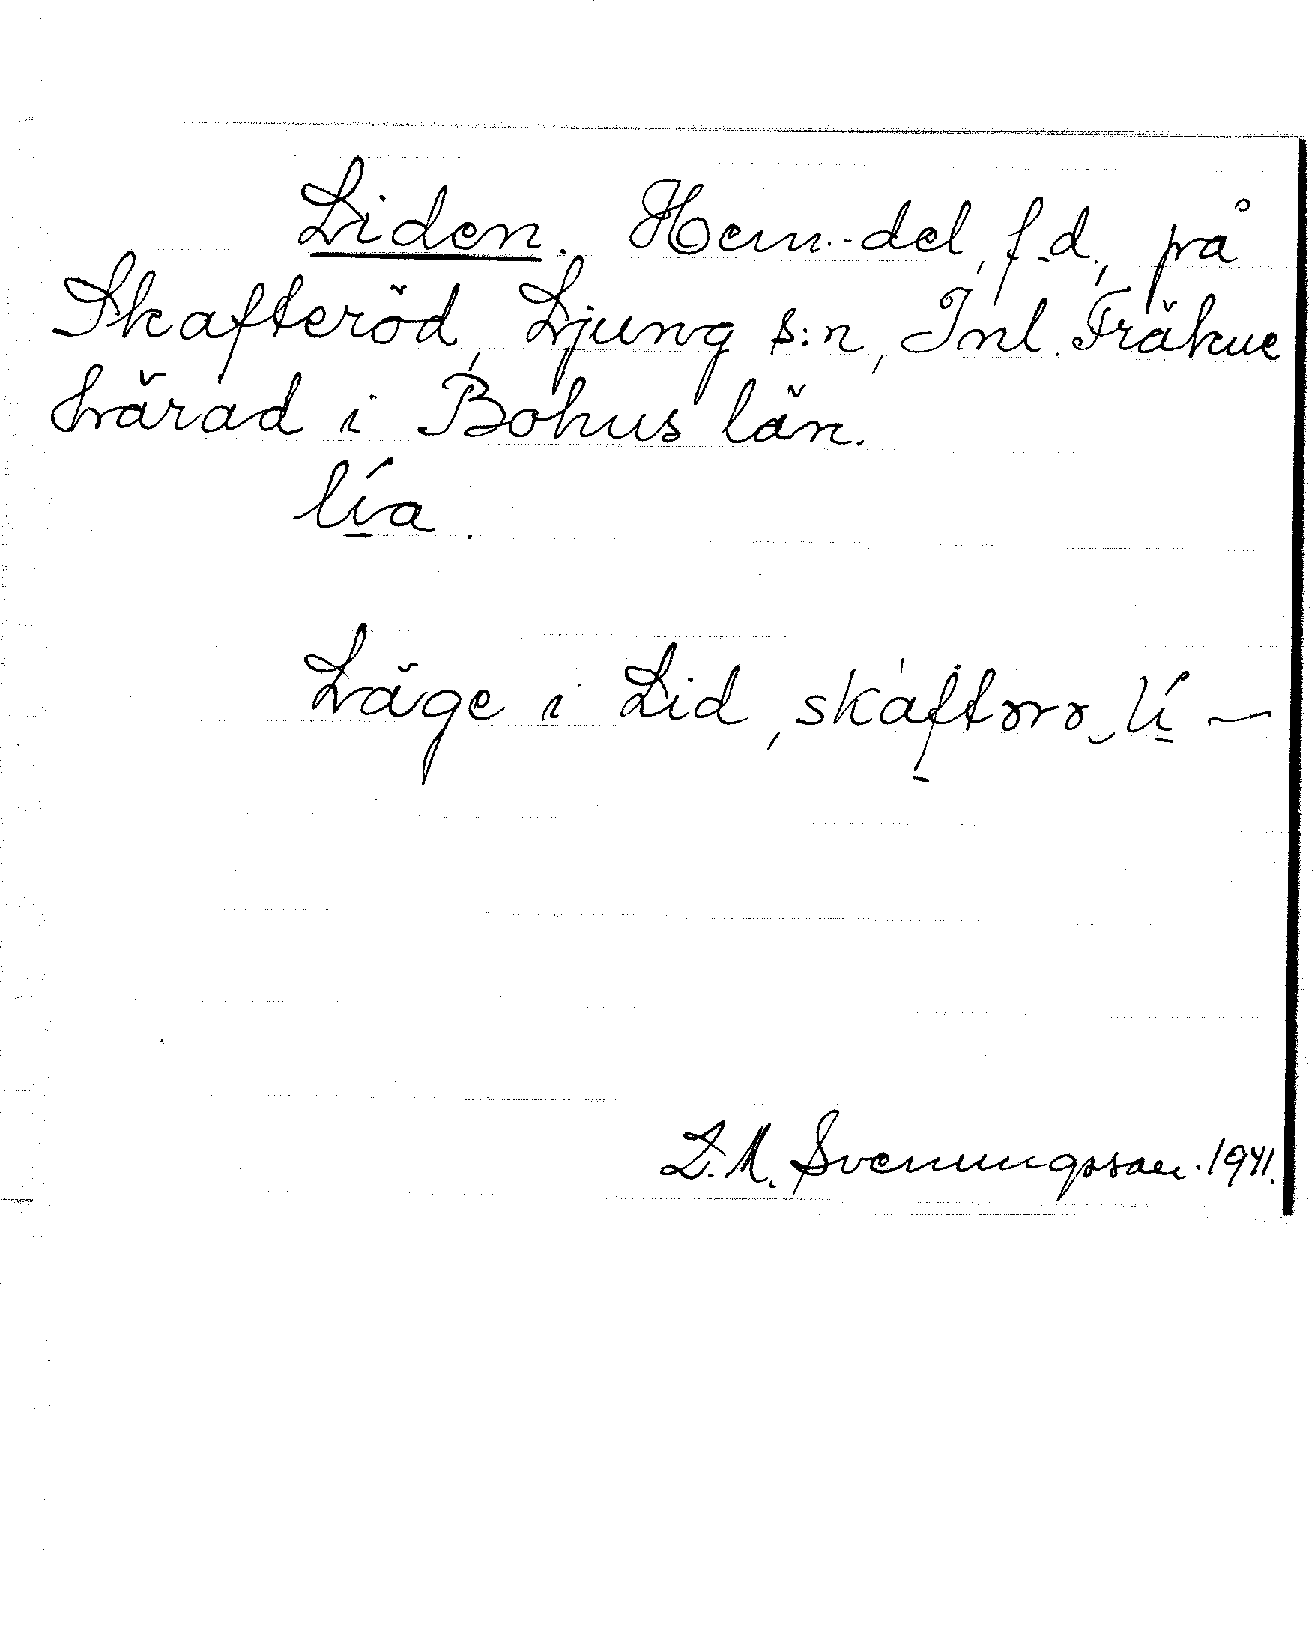 Liden. Hem.-del, f.d., på
Skafteröd, Ljung s:n, Inl. Fräkne
härad i Bohus län.
lía.
Läge i Lid, skáftɤrɤ lí —
L.M. Svenungsson. 1941.